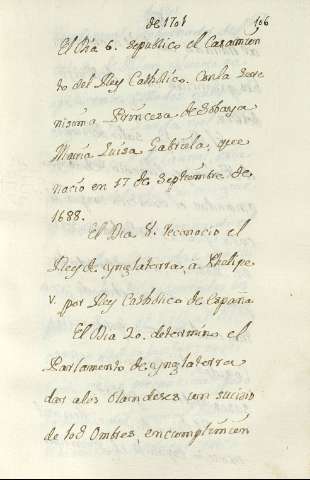 de 1701 106
El Dia 6. sepublico el Casamien
to del Rey Catholico. Con la Sere
nisima Princesa de Sobaya
Maria Luisa Gabriela, que
nacio en 17 de Septiembre de
1688.
El Dia 8. reconocio el
Rey de ynglaterra, a Phelipe
V. por Rey Catholico de España
El Dia 20. determino el
Parlamento de ynglaterra
dar alos olandeses un
de 10d Ombres, en cumplimien